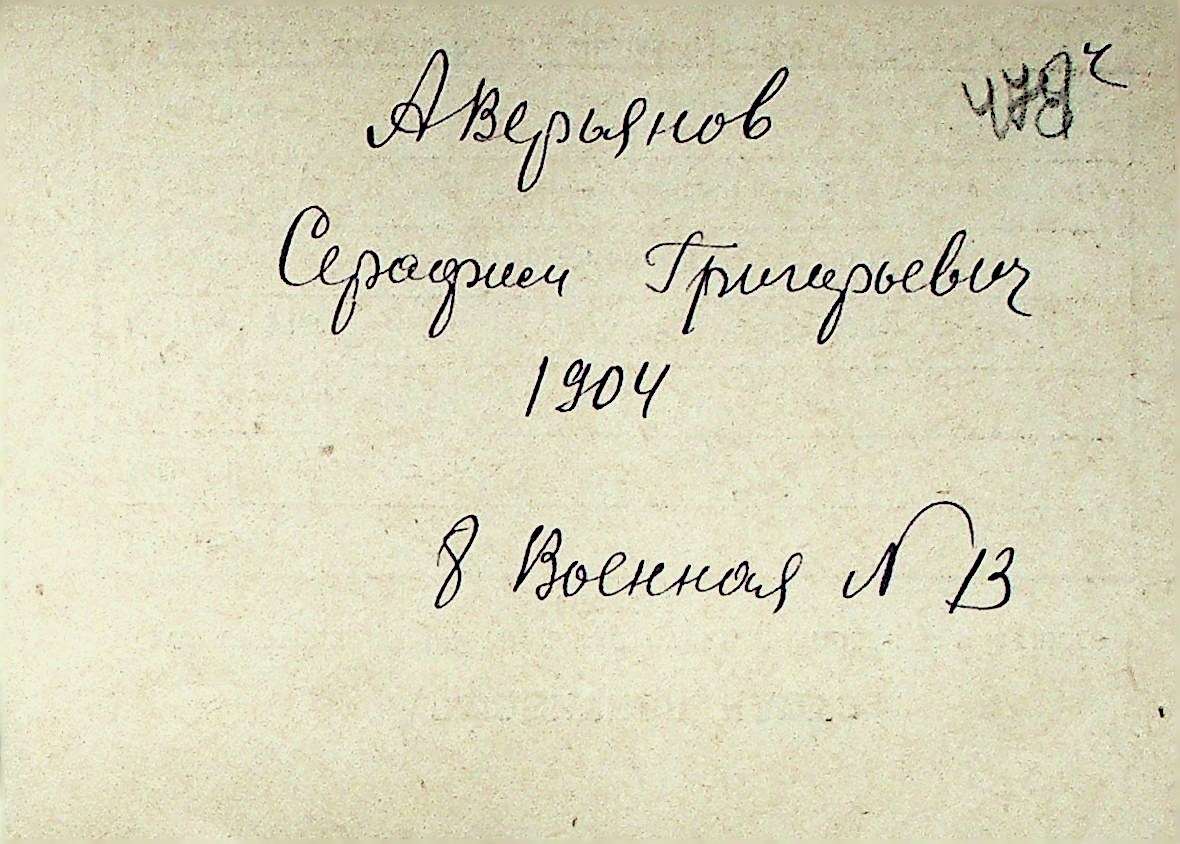 Аверьянов
Серафим Григорьевич
1904
8 Военная N 13